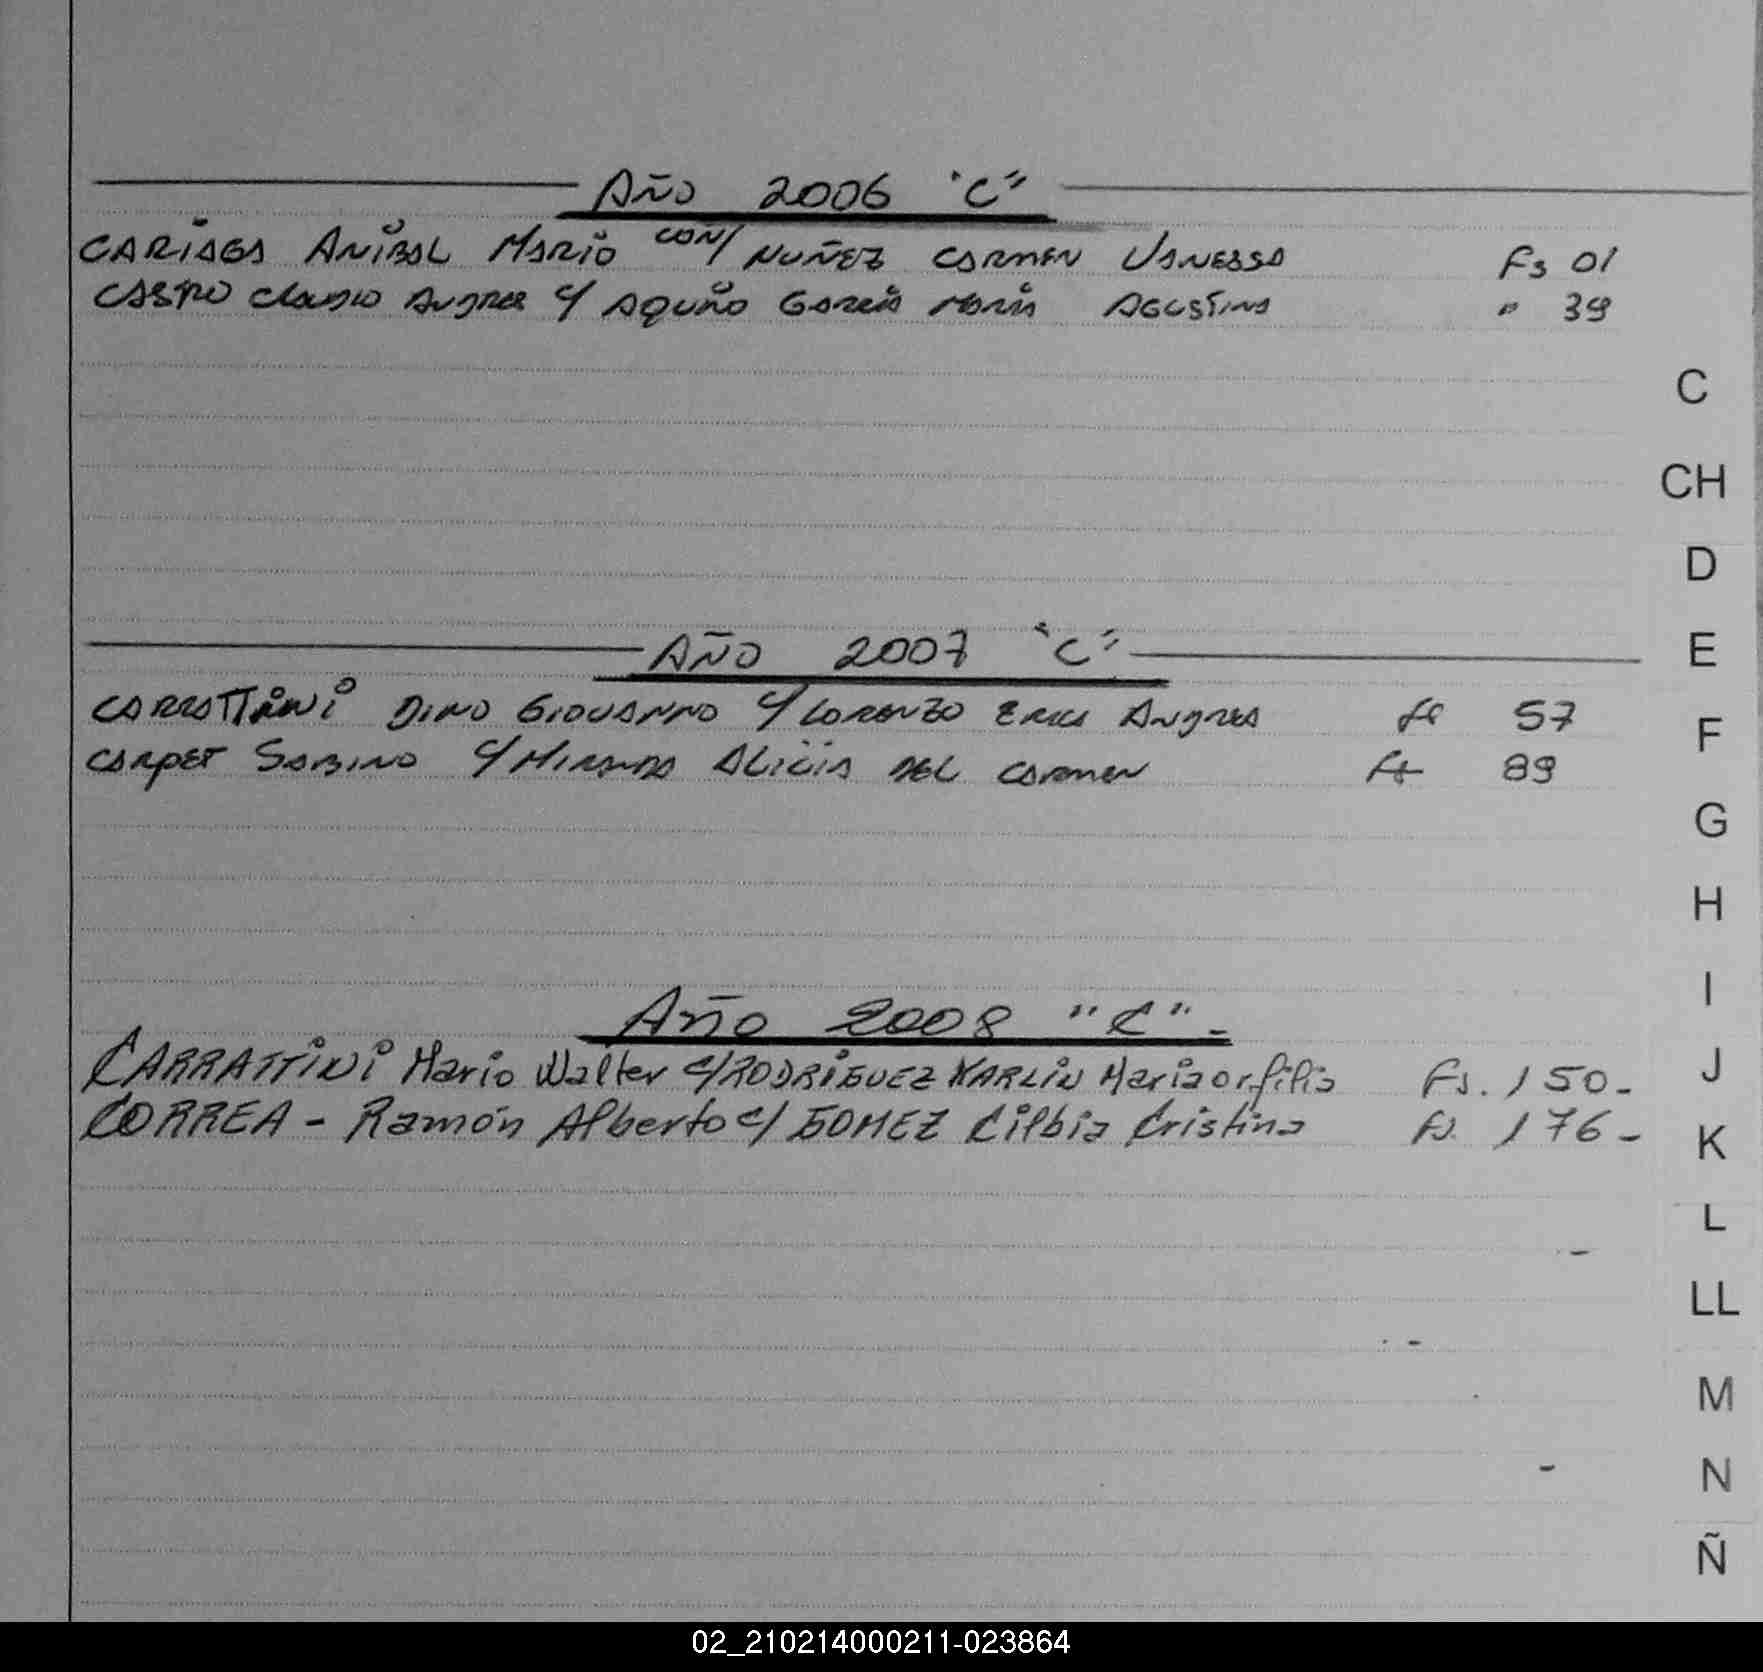 Año 2006 "C"
CARIAGA ANIBAL MARIO CON/ NUÑEZ CARMEN VANESSA Fs 01
CASTRO Claudio Andres C/ AQUINO GARCIA MARIA AGUSTINA " 39
C
CH
D
AÑO 2007 "C"
E
CARRATTINI DINO GIOVANNO C/ LORENZO ERICA ANDREA fs 57
F
CARPET SABINO C/ MIRANDA ALICIA DEL CARMEN fs 89
G
H
I
Año 2008 "C"-
CARRATTINI Mario Walter C/ RODRIGUEZ KARLIN Mariaorfilia Fs. 150-
J
CORREA - Ramón Alberto c/ GOMEZ Cilbia Cristina Fs. 176-
K
L
LL
M
N
Ñ
02_210214000211-023864